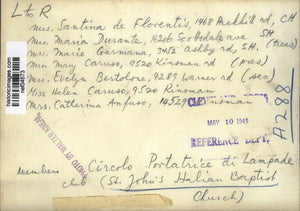 L to R
Mrs. Santina de Florentis, 1468 Parkhill rd, CH
Mrs. Maria Durante, 16206 Scotsdale ave SH (treas)
Mrs. Marie Germana, 3452 Ashby rd, S.H.
Mrs. Mary Caruso, 9520 Kinsman rd (pres)
Mrs. Evelyn Bertolore, 9289 Warner rd (sec)
Miss Helen Caruso, 9520 Kinsman
Mrs. Catterina Anfuso, 14529 Kinsman
MAY 10 1945
REFERENCE DEPT.
A288
PHOTO BY WALTER KNEAL
Members Circolo Portatrice di Lampade
club (St. John's Italian Baptist
Church)
historicimages.com